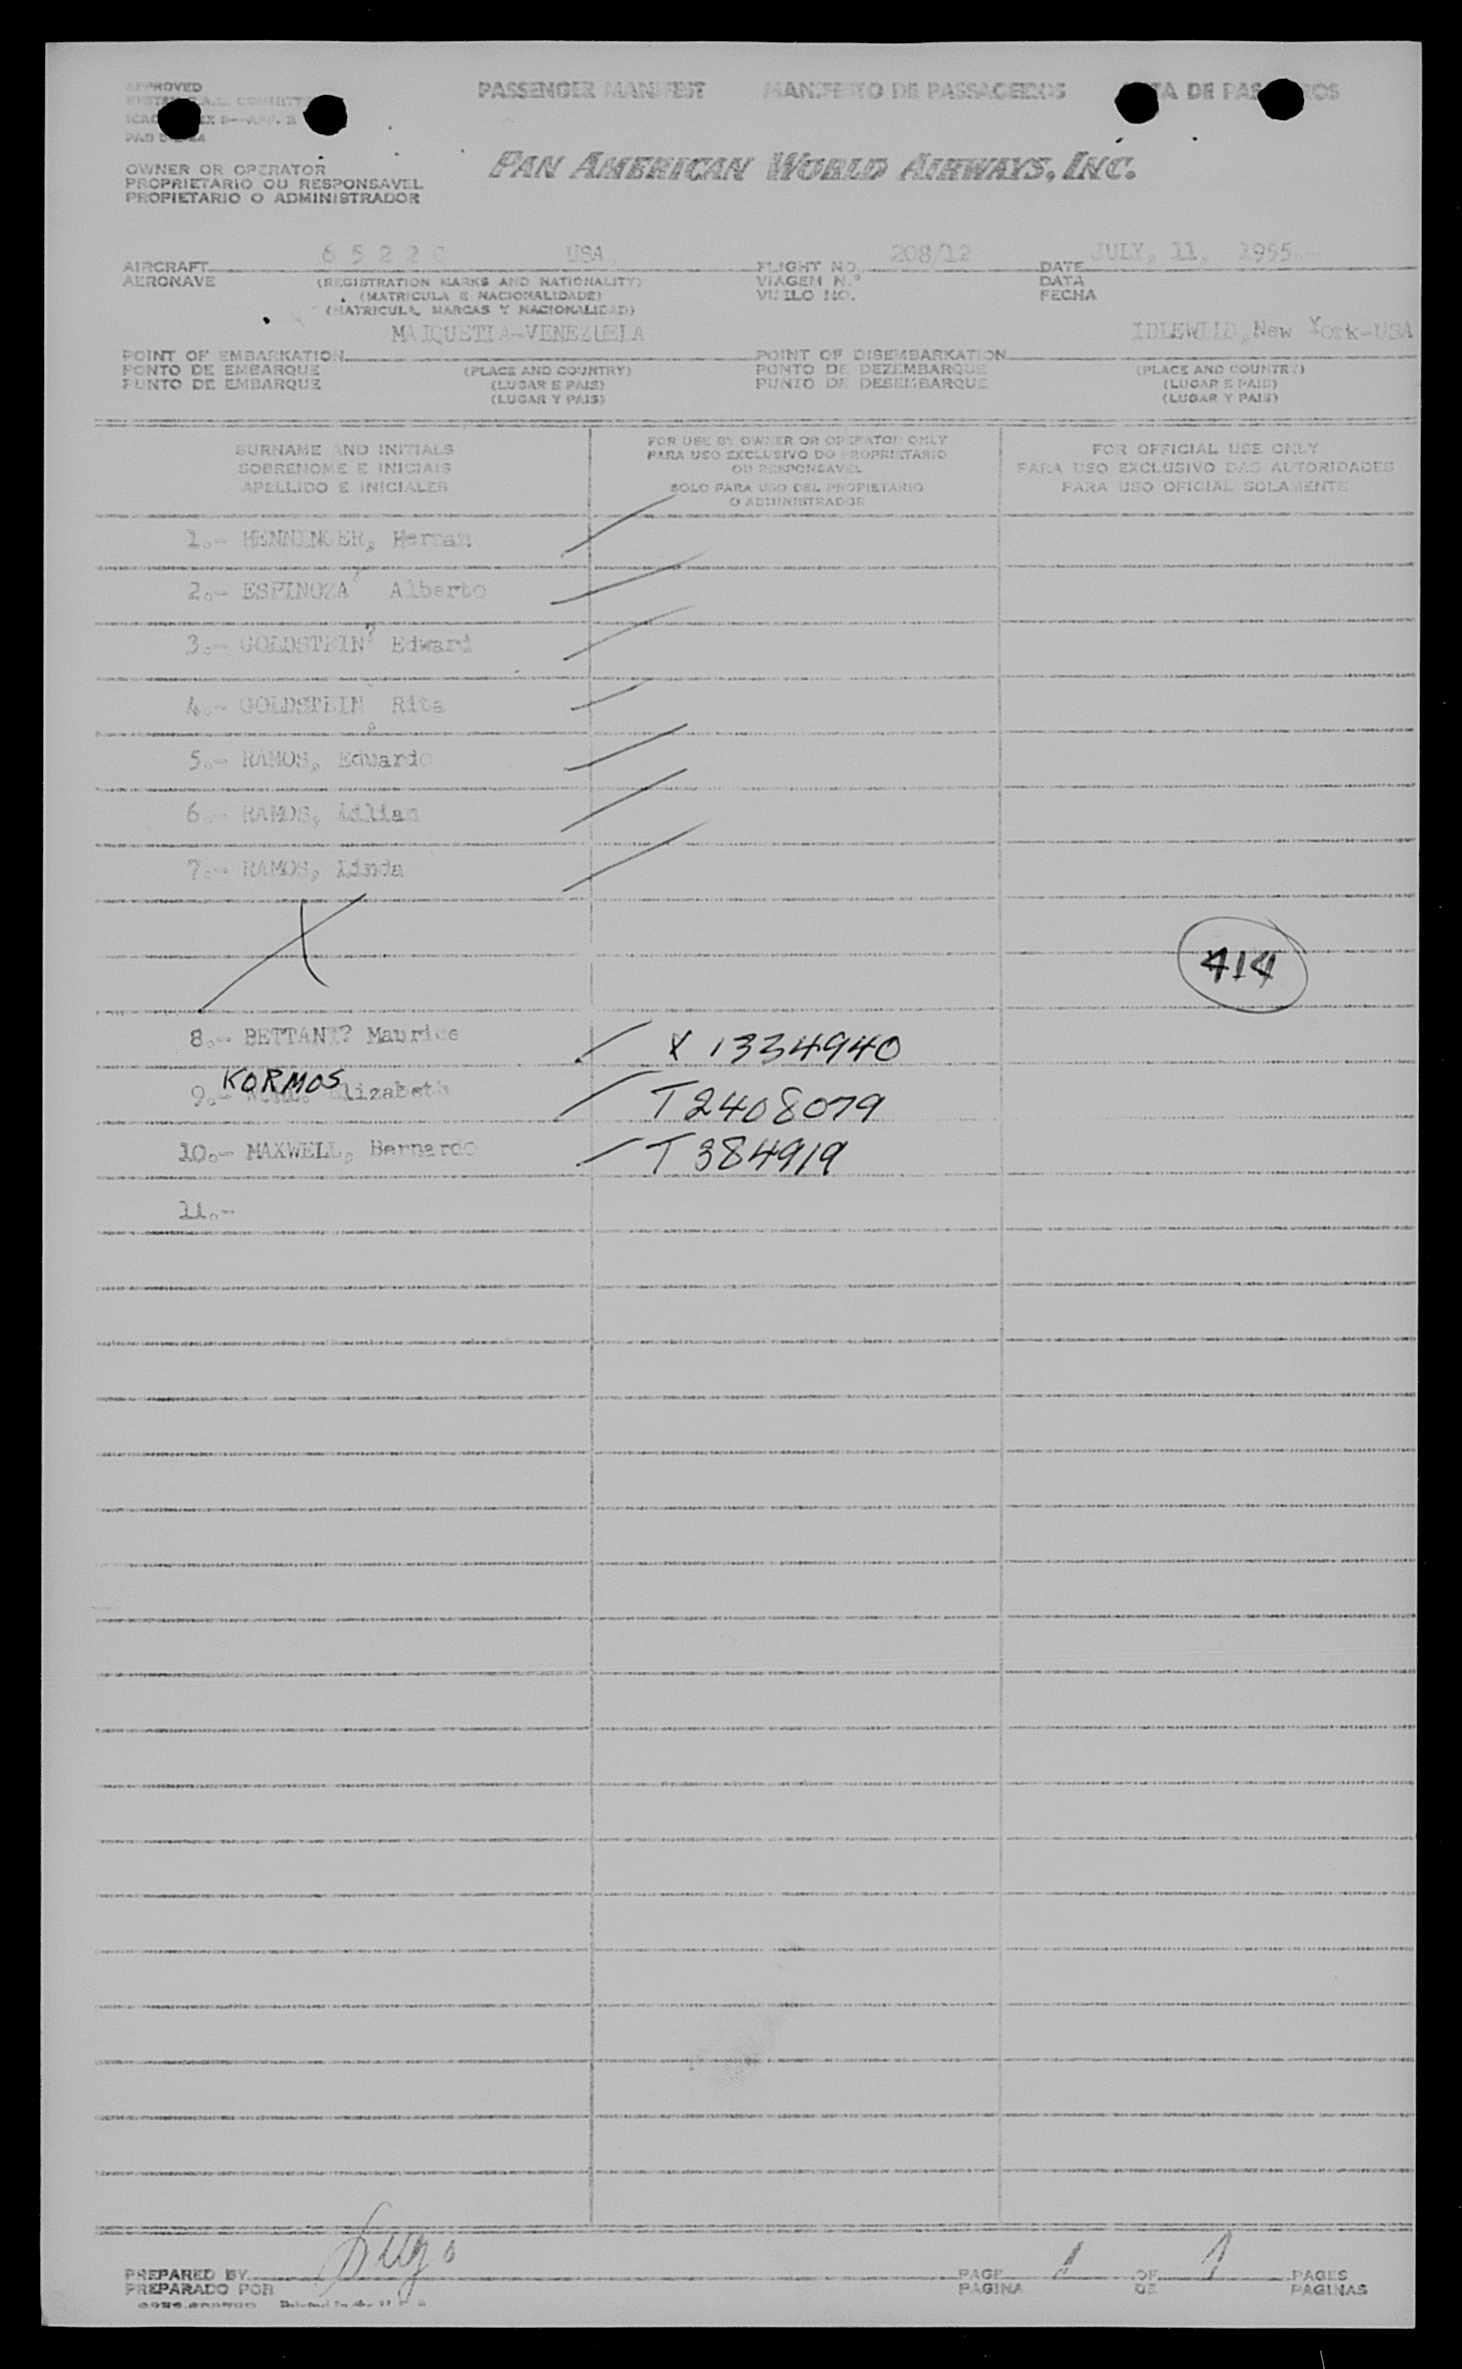 APPROVED
PASSENGER MANIFEST MANIFESTO DE PASSAGEIROS DE
PAN AMERICAN WORLD AIRWAYS, INC.
OWNER OR OPERATOR
PROPRIETARIO OU RESPONSAVEL
PROPIETARIO O ADMINISTRADOR
AIRCRAFT USA FLIGHT NO. 208/12 DATE JULY, 11, 1955.-
AERONAVE (REGISTRATION MARKS AND NATIONALITY) VIAGEM N.º DATA
(MATRICULA E NACIONALIDADE) VUELO NO. FECHA
(MATRICULA, MARCAS Y NACIONALIDAD)
MAIQUETIA-VENEZUELA IDLEWILD, New York-USA
POINT OF EMBARKATION POINT OF DISEMBARKATION
PONTO DE EMBARQUE (PLACE AND COUNTRY) PONTO DE DEZEMBARQUE (PLACE AND COUNTRY)
PUNTO DE EMBARQUE (LUGAR E PAIS) PUNTO DE DESEMBARQUE (LUGAR E PAIS)
(LUGAR Y PAIS) (LUGAR Y PAIS)
SURNAME AND INITIALS
SOBRENOME E INICIAIS
APELLIDO E INICIALES
FOR USE BY OWNER OR OPERATOR ONLY
PARA USO EXCLUSIVO DO PROPRIETARIO
OU RESPONSAVEL
SOLO PARA USO DEL PROPIETARIO
O ADMINISTRADOR
FOR OFFICIAL USE ONLY
PARA USO EXCLUSIVO DAS AUTORIDADES
PARA USO OFICIAL SOLAMENTE
1.- HENNINGER, Hernan
2.- ESPINOZA, Alberto
3.- GOLDSTEIN, Edward
4.- GOLDSTEIN, Rita
5.- RAMOS, Eduardo
6.- RAMOS, Lilian
7.- RAMOS, Linda
414
8.- Maurice X 1334940
KORMOS
9.- Elizabeth T2408079
10.- MAXWELL, Bernardo T 384919
11.-
PREPARED BY PAGE 1 OF 1 PAGES
PREPARADO POR PAGINA DE PAGINAS